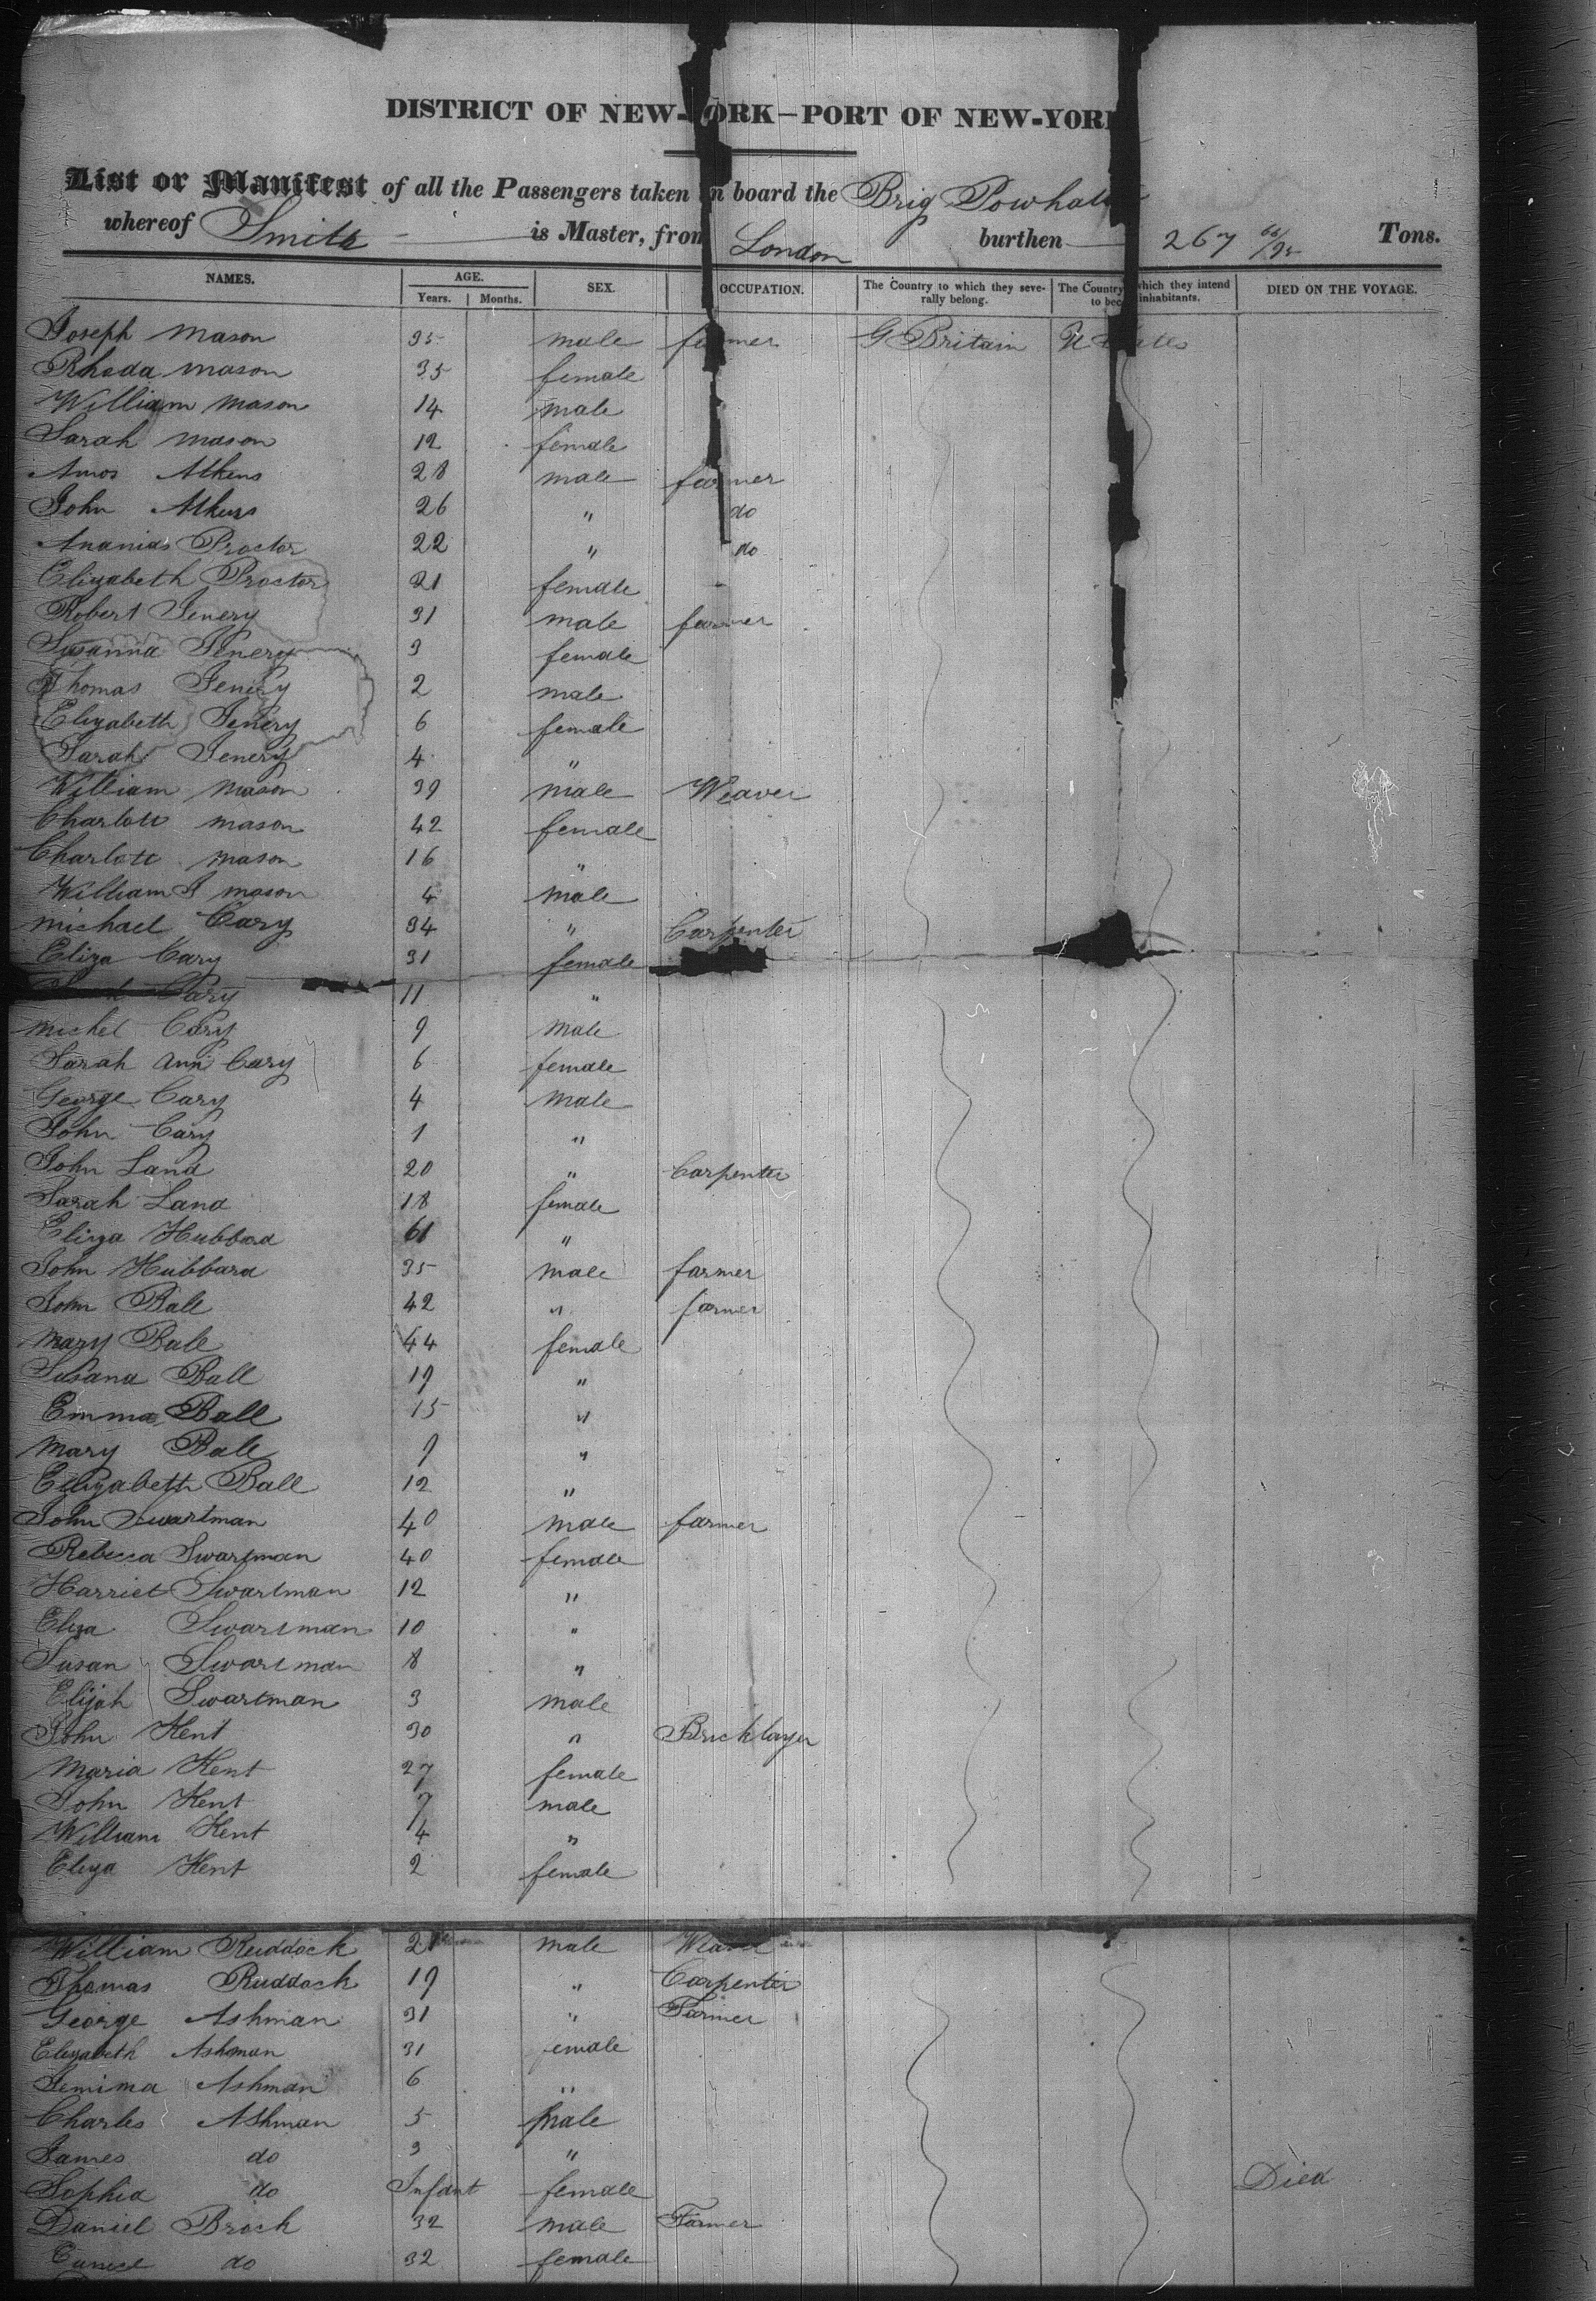 DISTRICT OF NEW-YORK—PORT OF NEW-YORK
List or Manifest of all the Passengers taken on board the Brig Powhatan
whereof Smith is Master, from London burthen 267 66/95 Tons.
NAMES. AGE. Years. Months. SEX. OCCUPATION. The Country to which they severally belong. The Country which they intend to become inhabitants. DIED ON THE VOYAGE.
Joseph Mason 35 male farmer G Britain U States
Rhoda Mason 35 female
William Mason 14 male
Sarah Mason 12 female
Amos Atkens 28 male farmer
John Atkens 26 " do
Ananias Proctor 22 " do
Elizabeth Proctor 21 female
Robert Jenery 31 male farmer
Susanna Jenery 3 female
Thomas Jenery 2 male
Elizabeth Jenery 6 female
Sarah Jenery 4 "
William Mason 39 male Weaver
Charlott Mason 42 female
Charlott Mason 16 "
William J Mason 4 male
Michael Cary 34 " Carpenter
Eliza Cary 31 female
Cary 11 "
Michel Cary 9 male
Sarah Ann Cary 6 female
George Cary 4 male
John Cary 1 "
John Land 20 " Carpenter
Sarah Land 18 female
Eliza Hubbard 61 "
John Hubbard 35 male farmer
John Ball 42 " farmer
Mary Ball 44 female
Susana Ball 19 "
Emma Ball 15 "
Mary Ball 9 "
Elizabeth Ball 12 "
John Swartman 40 male farmer
Rebecca Swartman 40 female
Harriet Swartman 12 "
Eliza Swartman 10 "
Susan Swartman 8 "
Elijah Swartman 3 male
John Kent 30 " Bricklayer
Maria Kent 27 female
John Kent 7 male
William Kent 4 "
Eliza Kent 2 female
William Ruddock 21 male Weaver
Thomas Ruddock 19 " Carpenter
George Ashman 31 " Farmer
Elizabeth Ashman 31 female
Jemima Ashman 6 "
Charles Ashman 5 male
James do 3 "
Sophia do Infant female Died
Daniel Brock 32 male Farmer
Eunice do 32 female